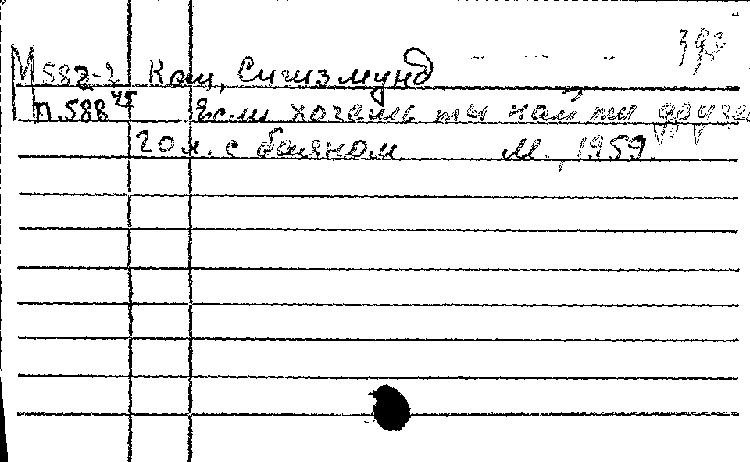 М 582-2 Кац, Сигизмунд
п.588 45 Если хочешь ты найти друга
Гол. с баяном М., 1959.